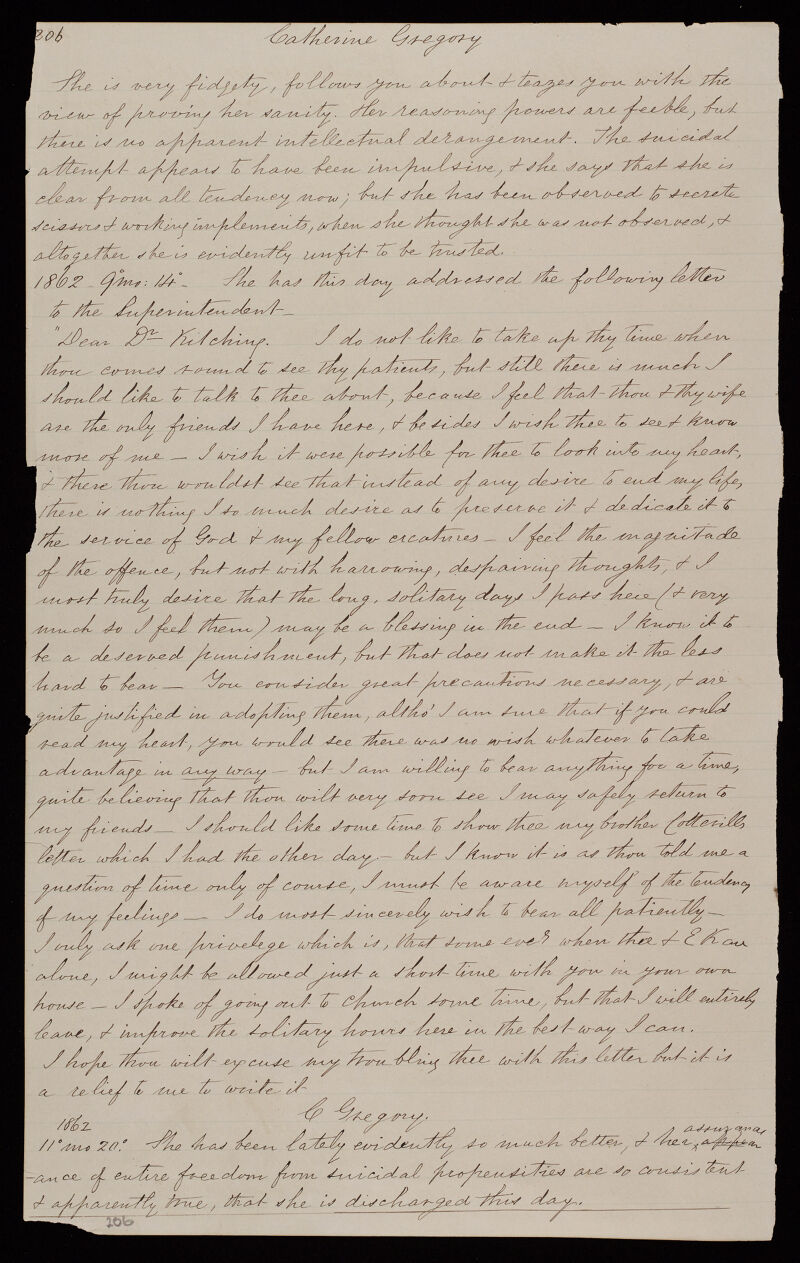 206 Catherine Gregory
She is very fidgety, follows you about & teazes you with the
view of proving her sanity. Her reasoning powers are feeble, but
there is no apparent intellectual derangement. The suicidal
attempt appears to have been impulsive, & she says that she is
clear from all tendency now; but she has been observed to secrete
scissors & working implements, when she thought she was not observed, &
altogether she is evidently unfit to be trusted.
1862 - 9° mo: 14° - She has this day addressed the following letter
to the Superintendent -
"Dear Dr Kitching. I do not like to take up thy time when
thou comes round to see thy patients, but still there is much I
should like to talk to thee about, because I feel that thou & thy wife
are the only friends I have here, & besides I wish thee to see & know
more of me - I wish it were possible for thee to look into my heart,
& there thou wouldst see that instead of any desire to end my life,
there is nothing I so much desire as to preserve it & dedicate it to
the service of God & my fellow creatures - I feel the magnitude
of the offence, but not with harrowing, despairing thoughts, & I
most truly desire that the long, solitary days I pass here (& very
much so I feel them) may be a blessing in the end - I know it to
be a deserved punishment, but that does not make it the less
hard to bear - You consider great precautions necessary, & are
quite justified in adopting them, altho' I am sure that if you could
read my heart, you would see there was no wish whatever to take
advantage in any way - but I am willing to bear anything for a time,
quite believing that thou wilt very soon see I may safely return to
my friends - I should like some time to show thee my brother Cotterills
letter which I had the other day - but I know it is as thou told me a
question of time only of course, I must be aware myself of the tendency
of my feelings - I do most sincerely wish to bear all patiently -
I only ask one privelege which is, that some eveg when thee & E K are
alone, I might be allowed just a short time with you in your own
house - I spoke of going out to Church some time, but that I will entirely
leave, & improve the solitary hours here in the best way I can.
I hope thou wilt excuse my troubling thee with this letter but it is
a relief to me to write it
C Gregory.
1862
11° mo 20°. She has been lately evidently so much better, & her assurances appear
-ance of entire freedom from suicidal propensities are so consistent
& apparently true, that she is discharged this day.
206